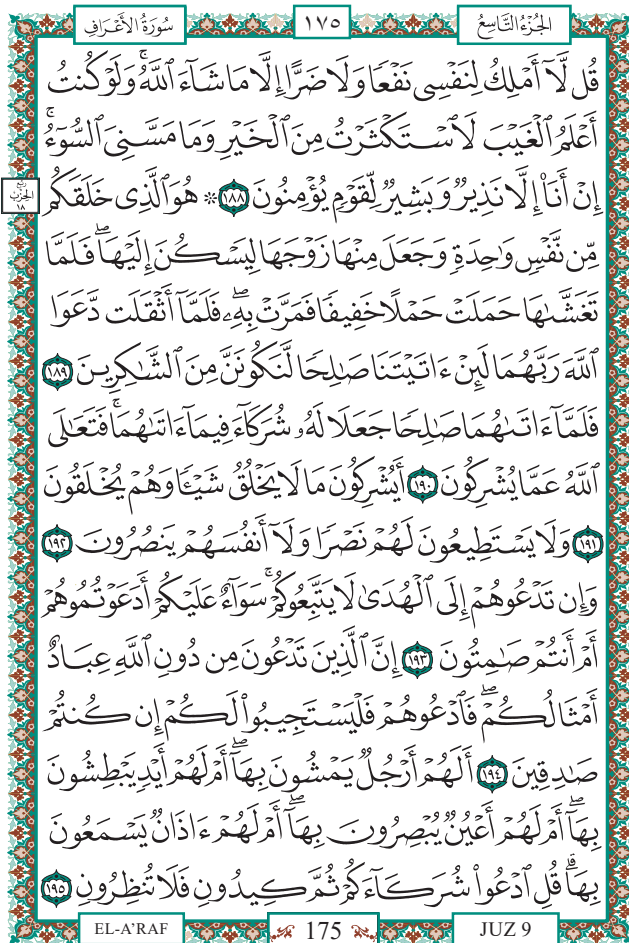 الجُزْءُ التَّاسِعُ
١٧٥
سُورَةُ الأَعْرَافِ
قُل لَّآ أَمْلِكُ لِنَفْسِى نَفْعًا وَلَا ضَرًّا إِلَّا مَا شَآءَ ٱللَّهُ ۚ وَلَوْ كُنتُ
أَعْلَمُ ٱلْغَيْبَ لَٱسْتَكْثَرْتُ مِنَ ٱلْخَيْرِ وَمَا مَسَّنِىَ ٱلسُّوٓءُ ۚ
إِنْ أَنَا۠ إِلَّا نَذِيرٌ وَبَشِيرٌ لِّقَوْمٍ يُؤْمِنُونَ ١٨٨ ۞ هُوَ ٱلَّذِى خَلَقَكُم
ربع
الحزب
١٨
مِّن نَّفْسٍ وَٰحِدَةٍ وَجَعَلَ مِنْهَا زَوْجَهَا لِيَسْكُنَ إِلَيْهَا ۖ فَلَمَّا
تَغَشَّىٰهَا حَمَلَتْ حَمْلًا خَفِيفًا فَمَرَّتْ بِهِۦ ۖ فَلَمَّآ أَثْقَلَت دَّعَوَا
ٱللَّهَ رَبَّهُمَا لَئِنْ ءَاتَيْتَنَا صَٰلِحًا لَّنَكُونَنَّ مِنَ ٱلشَّٰكِرِينَ ١٨٩
فَلَمَّآ ءَاتَىٰهُمَا صَٰلِحًا جَعَلَا لَهُۥ شُرَكَآءَ فِيمَآ ءَاتَىٰهُمَا ۚ فَتَعَٰلَى
ٱللَّهُ عَمَّا يُشْرِكُونَ ١٩٠ أَيُشْرِكُونَ مَا لَا يَخْلُقُ شَيْـًٔا وَهُمْ يُخْلَقُونَ
١٩١ وَلَا يَسْتَطِيعُونَ لَهُمْ نَصْرًا وَلَآ أَنفُسَهُمْ يَنصُرُونَ ١٩٢
وَإِن تَدْعُوهُمْ إِلَى ٱلْهُدَىٰ لَا يَتَّبِعُوكُمْ ۚ سَوَآءٌ عَلَيْكُمْ أَدَعَوْتُمُوهُمْ
أَمْ أَنتُمْ صَٰمِتُونَ ١٩٣ إِنَّ ٱلَّذِينَ تَدْعُونَ مِن دُونِ ٱللَّهِ عِبَادٌ
أَمْثَالُكُمْ ۖ فَٱدْعُوهُمْ فَلْيَسْتَجِيبُوا۟ لَكُمْ إِن كُنتُمْ
صَٰدِقِينَ ١٩٤ أَلَهُمْ أَرْجُلٌ يَمْشُونَ بِهَآ ۖ أَمْ لَهُمْ أَيْدٍ يَبْطِشُونَ
بِهَآ ۖ أَمْ لَهُمْ أَعْيُنٌ يُبْصِرُونَ بِهَآ ۖ أَمْ لَهُمْ ءَاذَانٌ يَسْمَعُونَ
بِهَا ۗ قُلِ ٱدْعُوا۟ شُرَكَآءَكُمْ ثُمَّ كِيدُونِ فَلَا تُنظِرُونِ ١٩٥
EL-A'RAF
175
JUZ 9